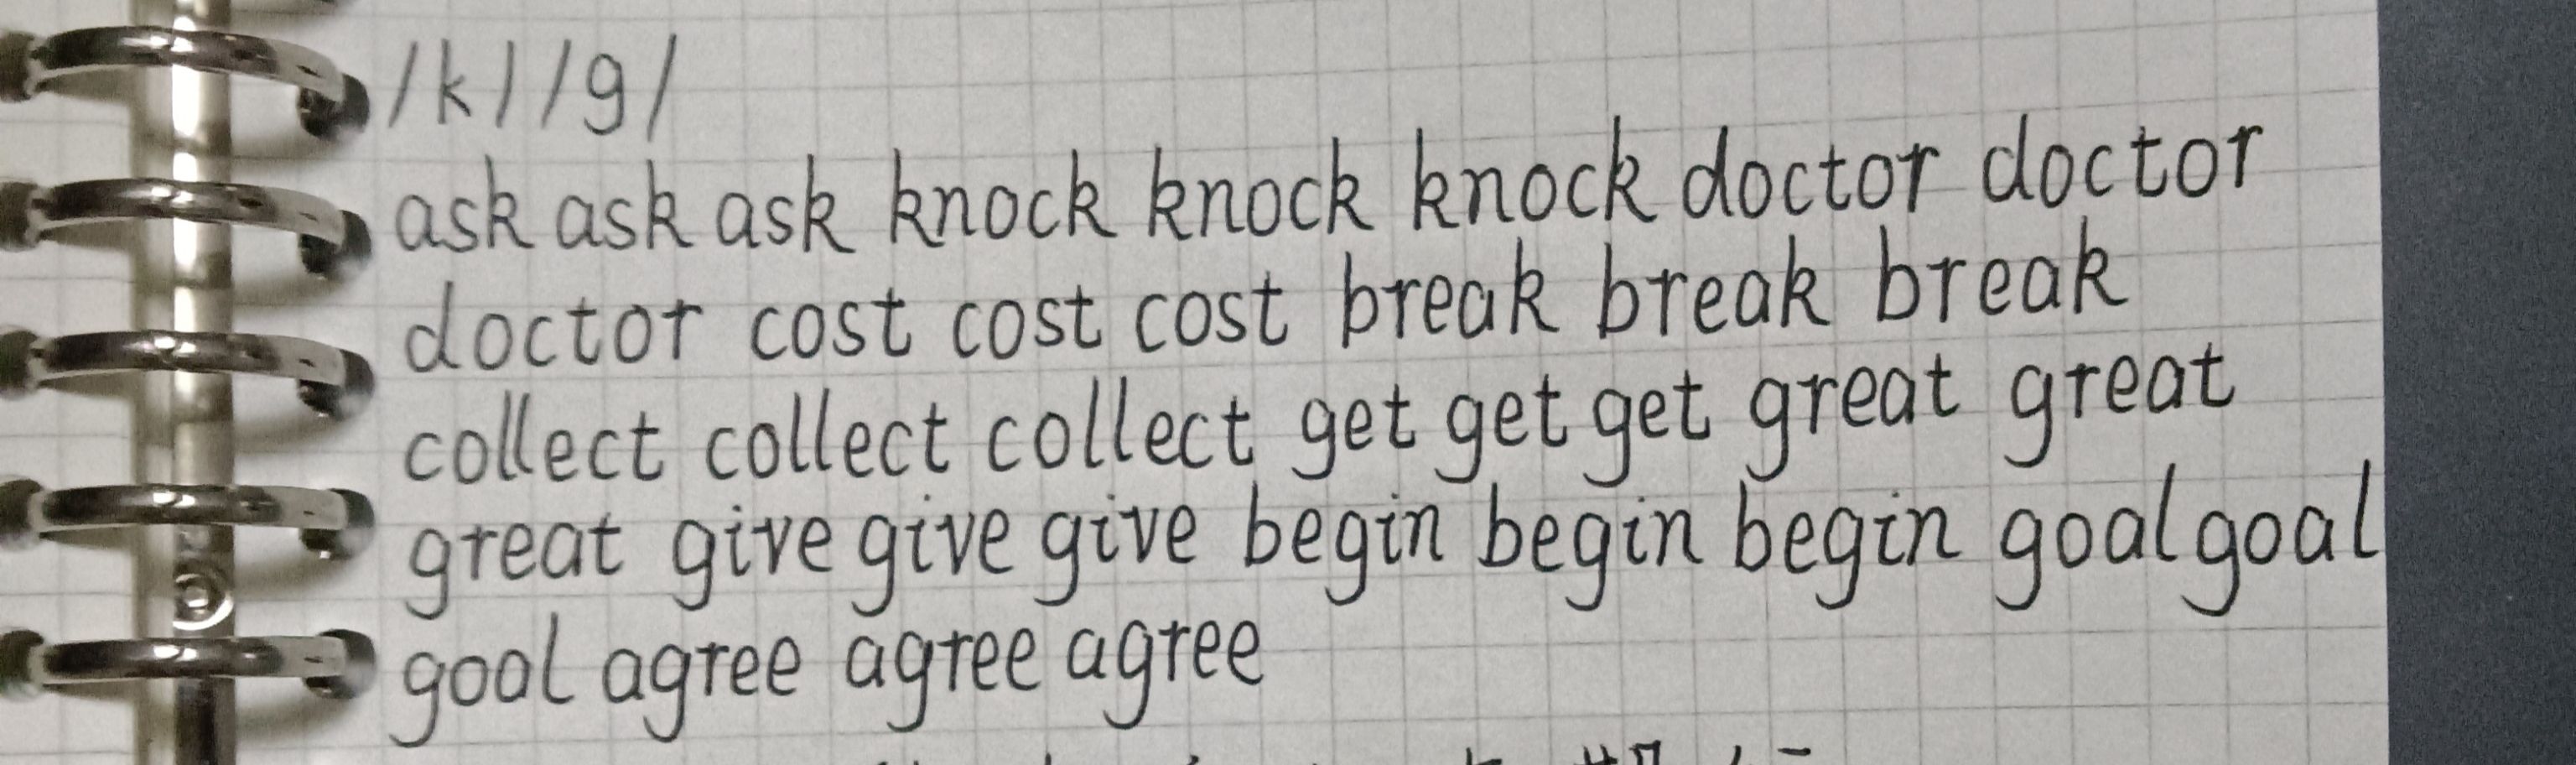 /k/ /g/
ask ask ask knock knock knock doctor doctor
doctor cost cost cost break break break
collect collect collect get get get great great
great give give give begin begin begin goal goal
goal agree agree agree